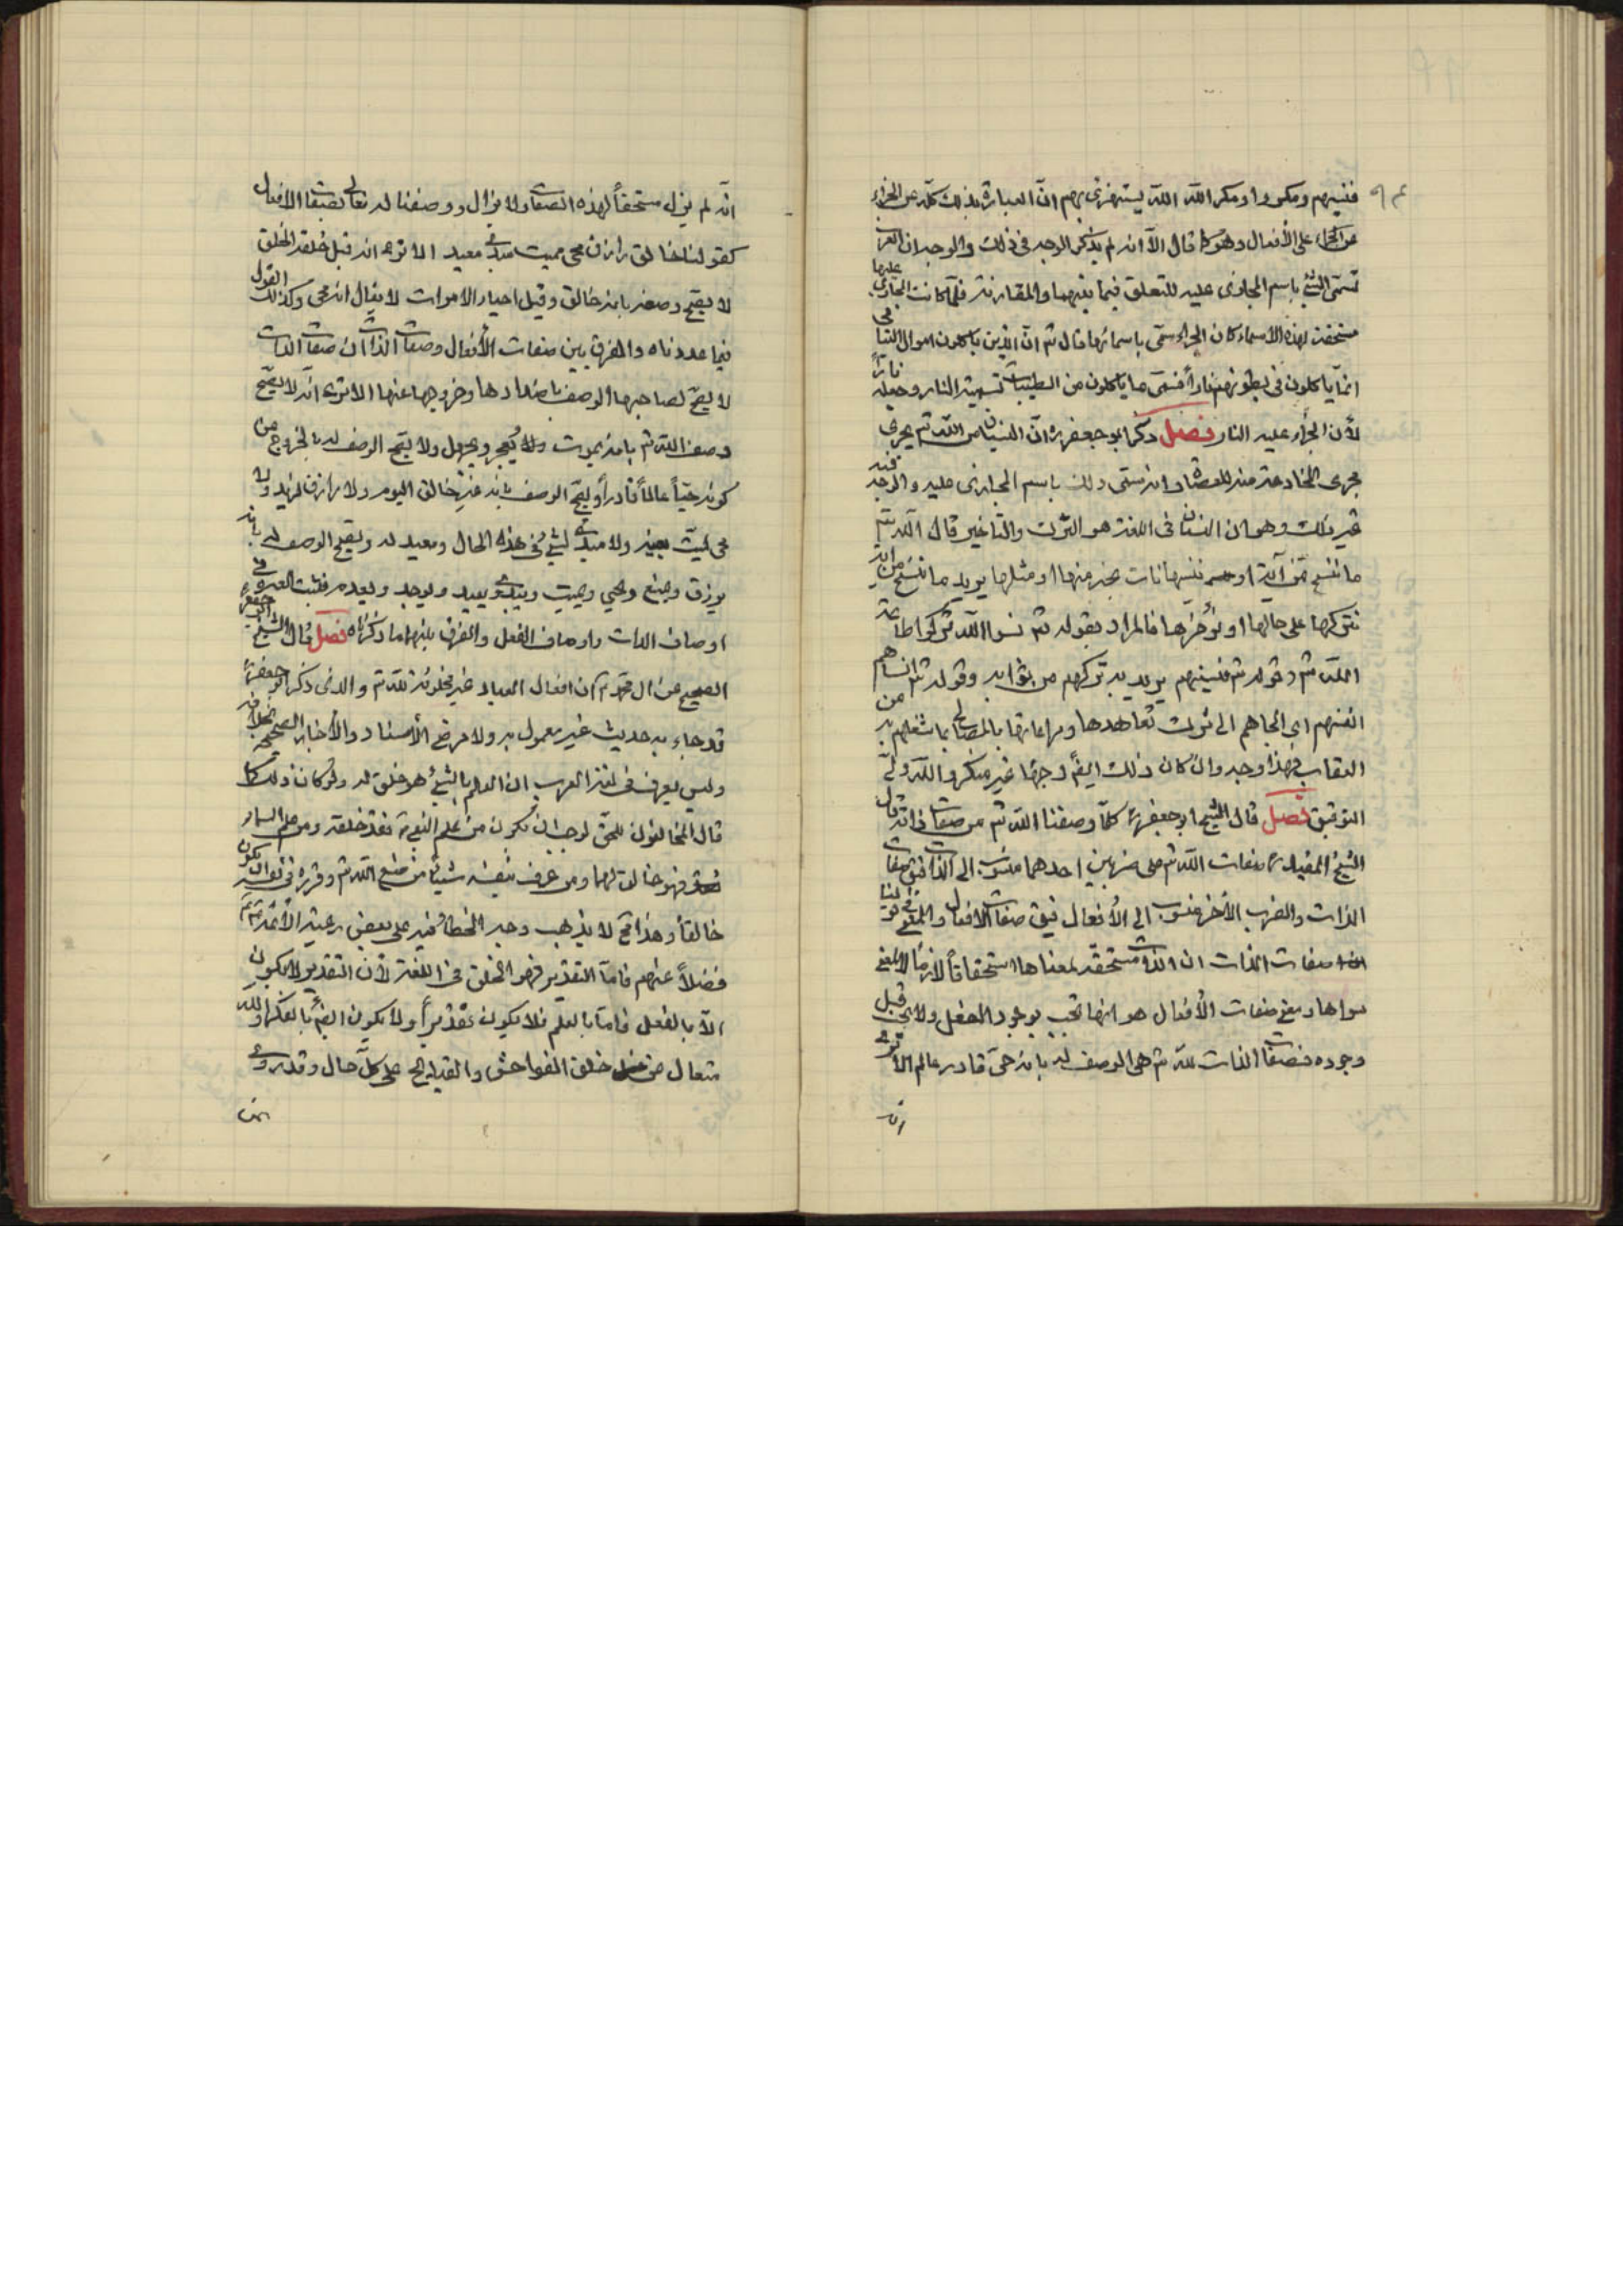 فنسيهم ومكروا ومكر الله الله يستهزئ بهم ان العبارة بذلك كله عن الجزاء
عن الجزاء على الأفعال وهو كما قال الا انه لم يذكر الوجه فى ذلك والوجه ان العرب
تسمى الشئ باسم المجازى عليه للتعلق فيما بينهما والمقارنة فلما كانت المجازى عليها
مستحقة لهذه الأسماء كان الجزاء سمى باسمائها قال تم ان الذين ياكلون اموال اليتامى
انما ياكلون فى بطونهم نارا فسمى ما ياكلون من الطيبات تسمية النار وجعله نارا
لأن الجزاء عليه النار فصل ذكر ابو جعفر ره ان النسيان من الله تم يجرى
مجرى المخادعة منه للعصاة وانه سمى ذلك باسم المجازى عليه والوجه فيه
غير ذلك وهو ان النسيان فى اللغة هو الترك والتأخير قال الله تم
ما ننسخ من آية او ننسها نات بخير منها او مثلها يريد ما ننسخ من آية
نتركها على حالها او نؤخرها فالمراد بقوله تم نسوا الله تركوا طاعة
الله تم وقوله تم فنسيهم يريد به تركهم من ثوابه وقوله تم انساهم
انفسهم اى الجاهم الى ترك تعاهدها ومراعاتها بالمصالح بما شغلهم به من
العقاب فهذا وجه وان كان ذلك ايضً وجها غير منكر والله ولى
التوفيق فصل قال الشيخ ابو جعفر ره كلما وصفنا الله تم من صفات ذاته قال
الشيخ المفيد ره صفات الله تم على ضربين احدهما منسوب الى الذات فيق صفات
الذات والضرب الآخر منسوب الى الأفعال فيق صفات الافعال والمعنى فى قولنا
صفات الذات ان الذات مستحقة لمعناها استحقاقاً لازما لا لمعنى
سواها ومعنى صفات الأفعال هو انها تجب بوجود الفعل ولا تجب قبل
وجوده فصفات الذات لله تم هى الوصف له بانه حى قادر عالم الا ترى
انه
انه لم يزل مستحقاً لهذه الصفات ولا يزال ووصفنا له تعالى بصفات الافعال
كقولنا خالق رازق محى مميت مبدئ معيد الا ترى انه قبل خلقه الخلق
لا يصح وصفه بانه خالق وقبل احياء الاموات لا يقال انه محى وكذلك القول
فيما عددناه والفرق بين صفات الأفعال وصفات الذات ان صفات الذات
لا يصح لصاحبها الوصف باضدادها وخروجها عنها الا ترى انه لا يصح
وصف الله تم بانه يموت ولا يعجز ويجهل ولا يصح الوصف له بالخروج من
كونه حياً عالماً قادراً ويصح الوصف بانه غير خالق اليوم ولا رازق لزيد ولا
محى لميت بعينه ولا مبدئ لشئ فى هذه الحال ومعيد له ويصح الوصف له بانه
يرزق ويمنع ويحيي ويميت ويبدئ ويعيد ويوجد ويعدم فثبت العبرة فى
اوصاف الذات واوصاف الفعل والفرق بينهما ما ذكرناه فصل قال الشيخ ابو جعفر
الصحيح عن آل محمد ع ان افعال العباد غير مخلوقة لله تم والذى ذكره ابو جعفر ره
قد جاء به حديث غير معمول به ولا مرضى الأسناد والأخبار الصحيحة بخلافه
وليس يعرف فى لغة العرب ان العلم بالشئ هو خلق له ولو كان ذلك كما
قال المخالفون للحق لوجب ان يكون من علم النبى ص فقد خلقه ومن علم السماء
فهو خالق لهما ومن عرف بنفسه شيئا من صنع الله تم وقرره فى نفسه ان يكون
خالقاً وهذا مح لا يذهب وجه الخطا فيه على بعض رعية الأئمة ع
فضلاً عنهم فاما التقدير فهو الخلق فى اللغة لأن التقدير لا يكون
الا بالفعل فاما بالعلم فلا يكون تقديراً ولا يكون ايضً بالفكر والله
متعال عن خلق الفواحش والقبايح على كل حال وقد روى
عن